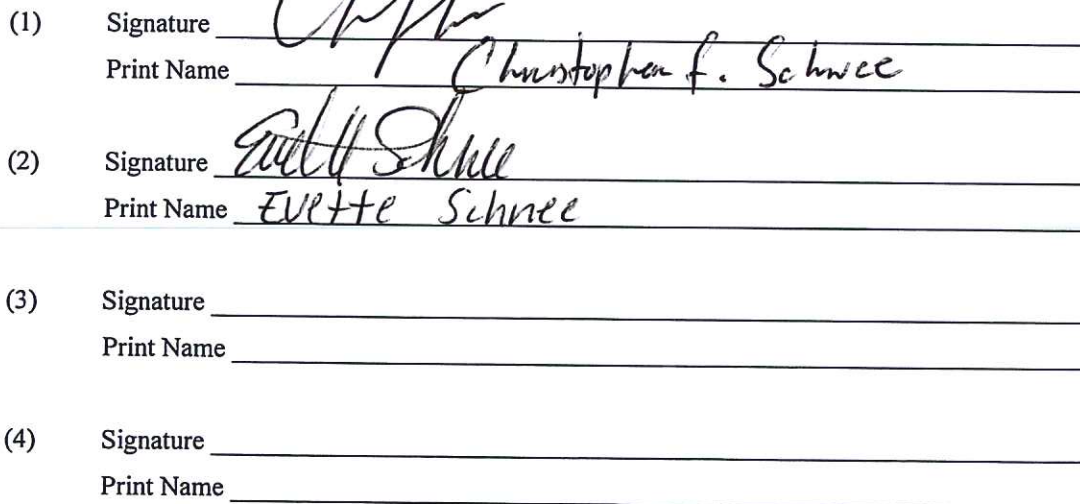 (1) Signature
Print Name Christopher f. Schnee
(2) Signature Evette Schnee
Print Name Evette Schnee
(3) Signature
Print Name
(4) Signature
Print Name